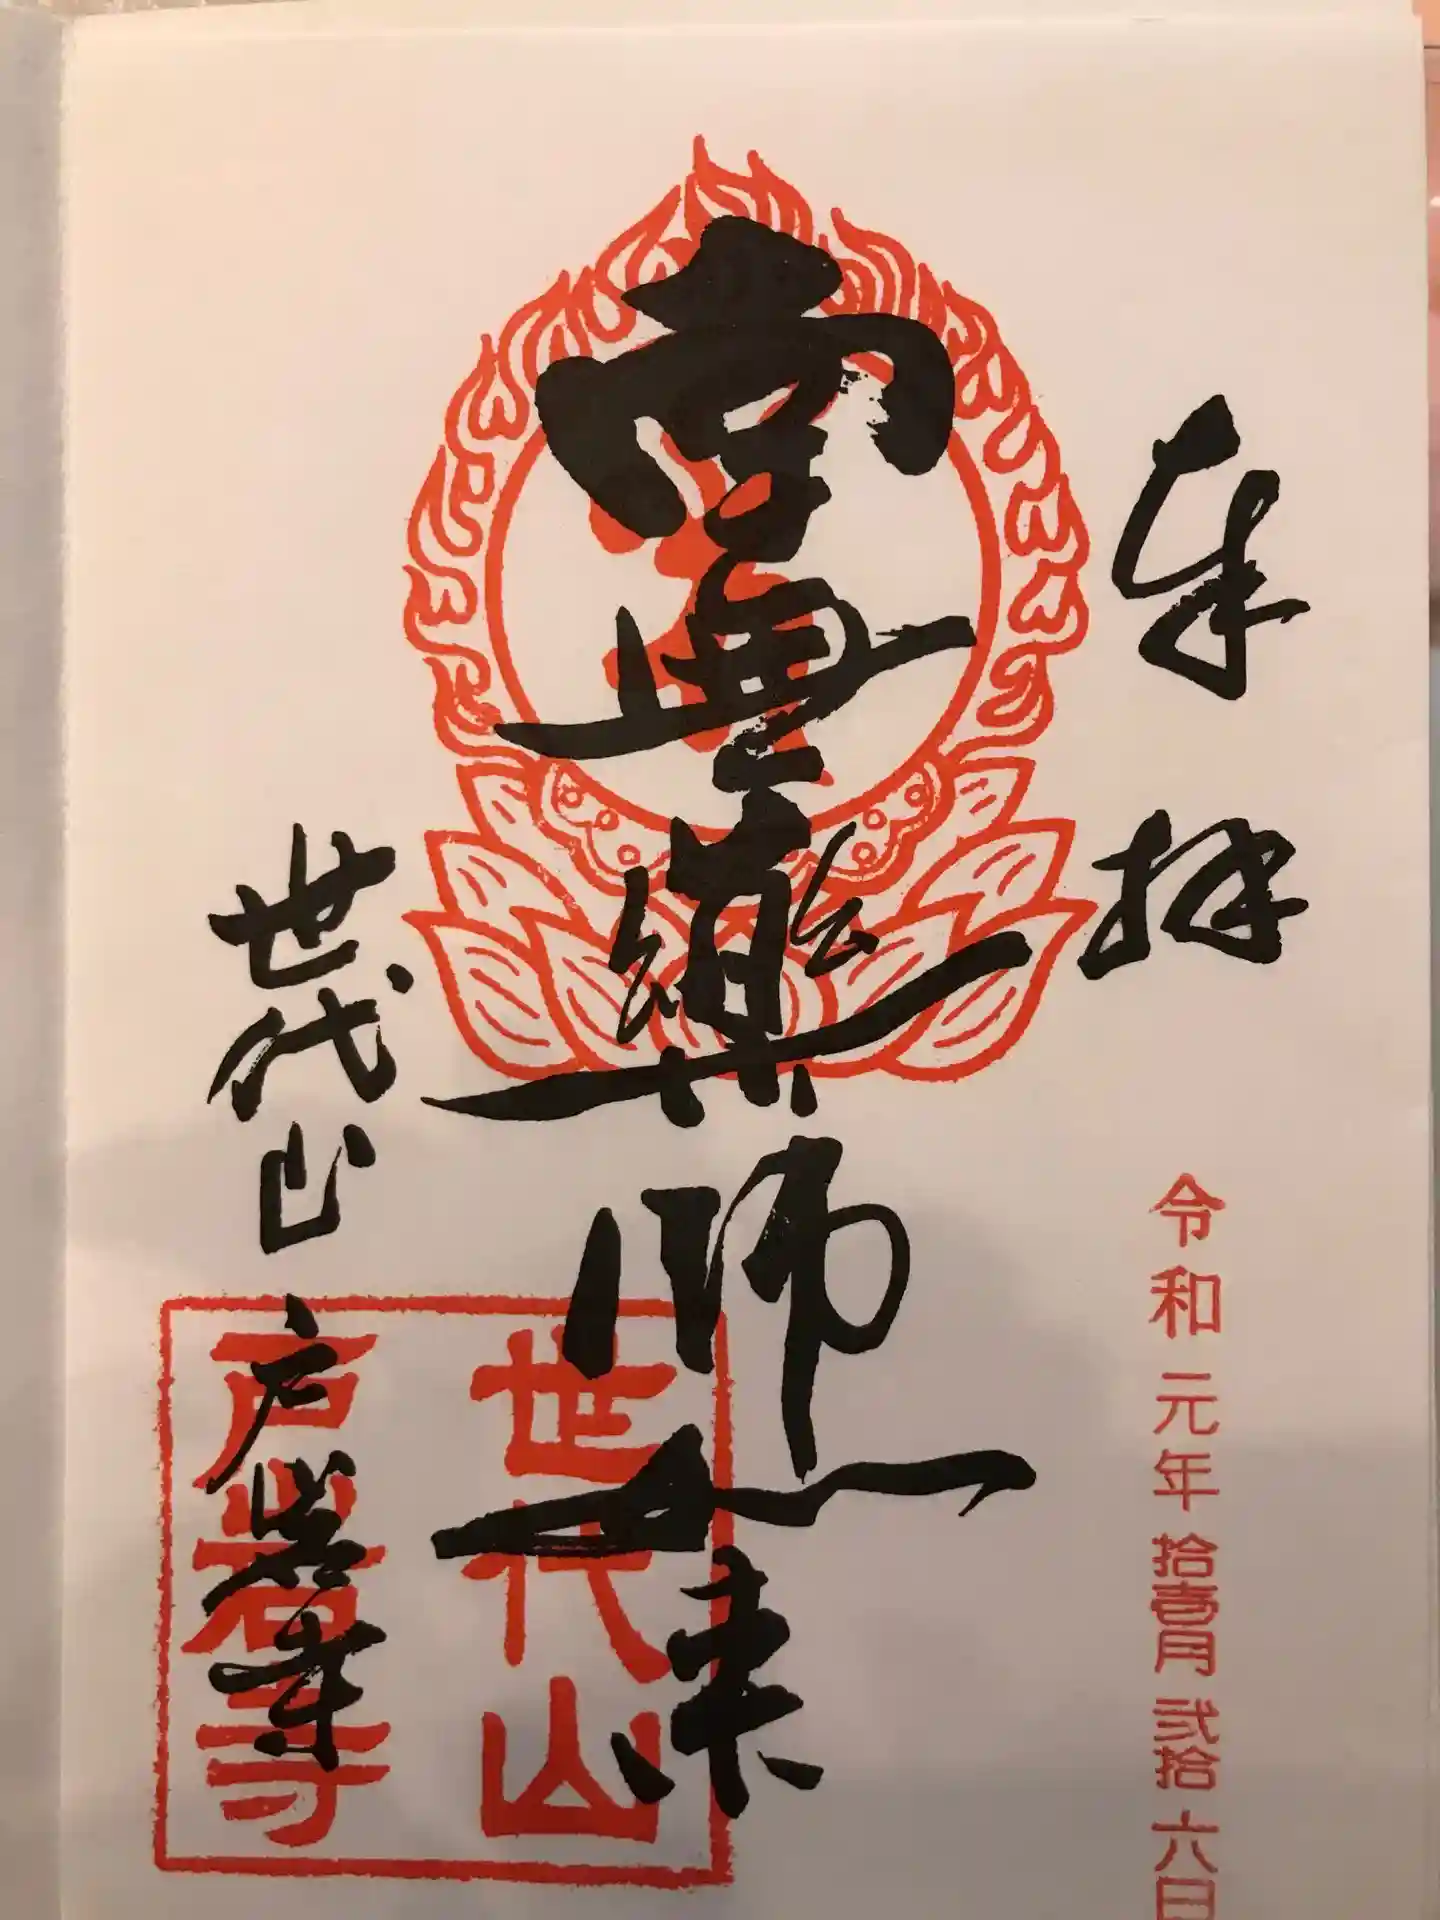 奉拝
令和元年拾壹月弐拾六日
南無薬師如来
世代山 戸岩寺
世代山
戸岩寺